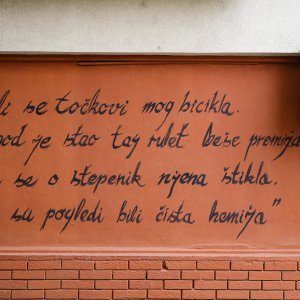 li se točkovi mog bicikla.
pod je stao taj rulet beše premija
se o stepenik njena štikla.
su pogledi bili čista hemija"